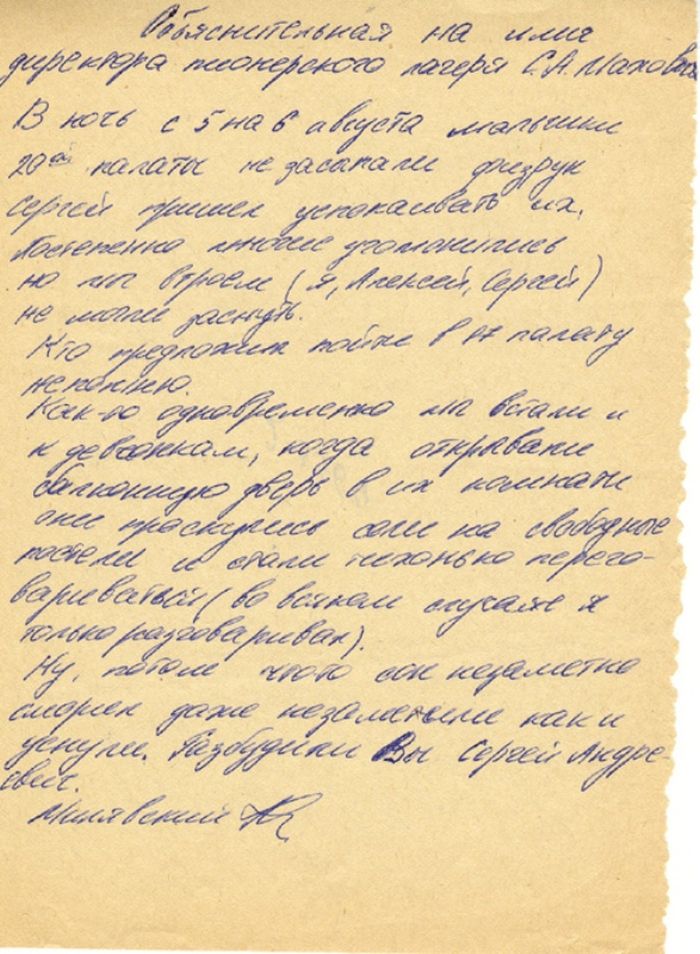 Объяснительная на имя
директора пионерского лагеря С.А.
В ночь с 5 на 6 августа мальчики
20ой палаты не засыпали физрук
Сергей пришел успокаивать их.
Постепенно многие угомонились
но мы втроем (я, Алексей, Сергей)
не могли заснуть.
Кто предложил пойти в 17 палату
не помню.
Как-то одновременно мы встали и
к девчонкам, когда открывали
балконную дверь в их комнати
они проснулись сели на свободные
постели и стали тихонько перего-
вариваться (во всяком случае я
только разговаривал).
Ну, потом что-то сон незаметно
сморил даже незаметили как и
уснули. Разбудили Вы Сергей Андре-
евич.
Милявский